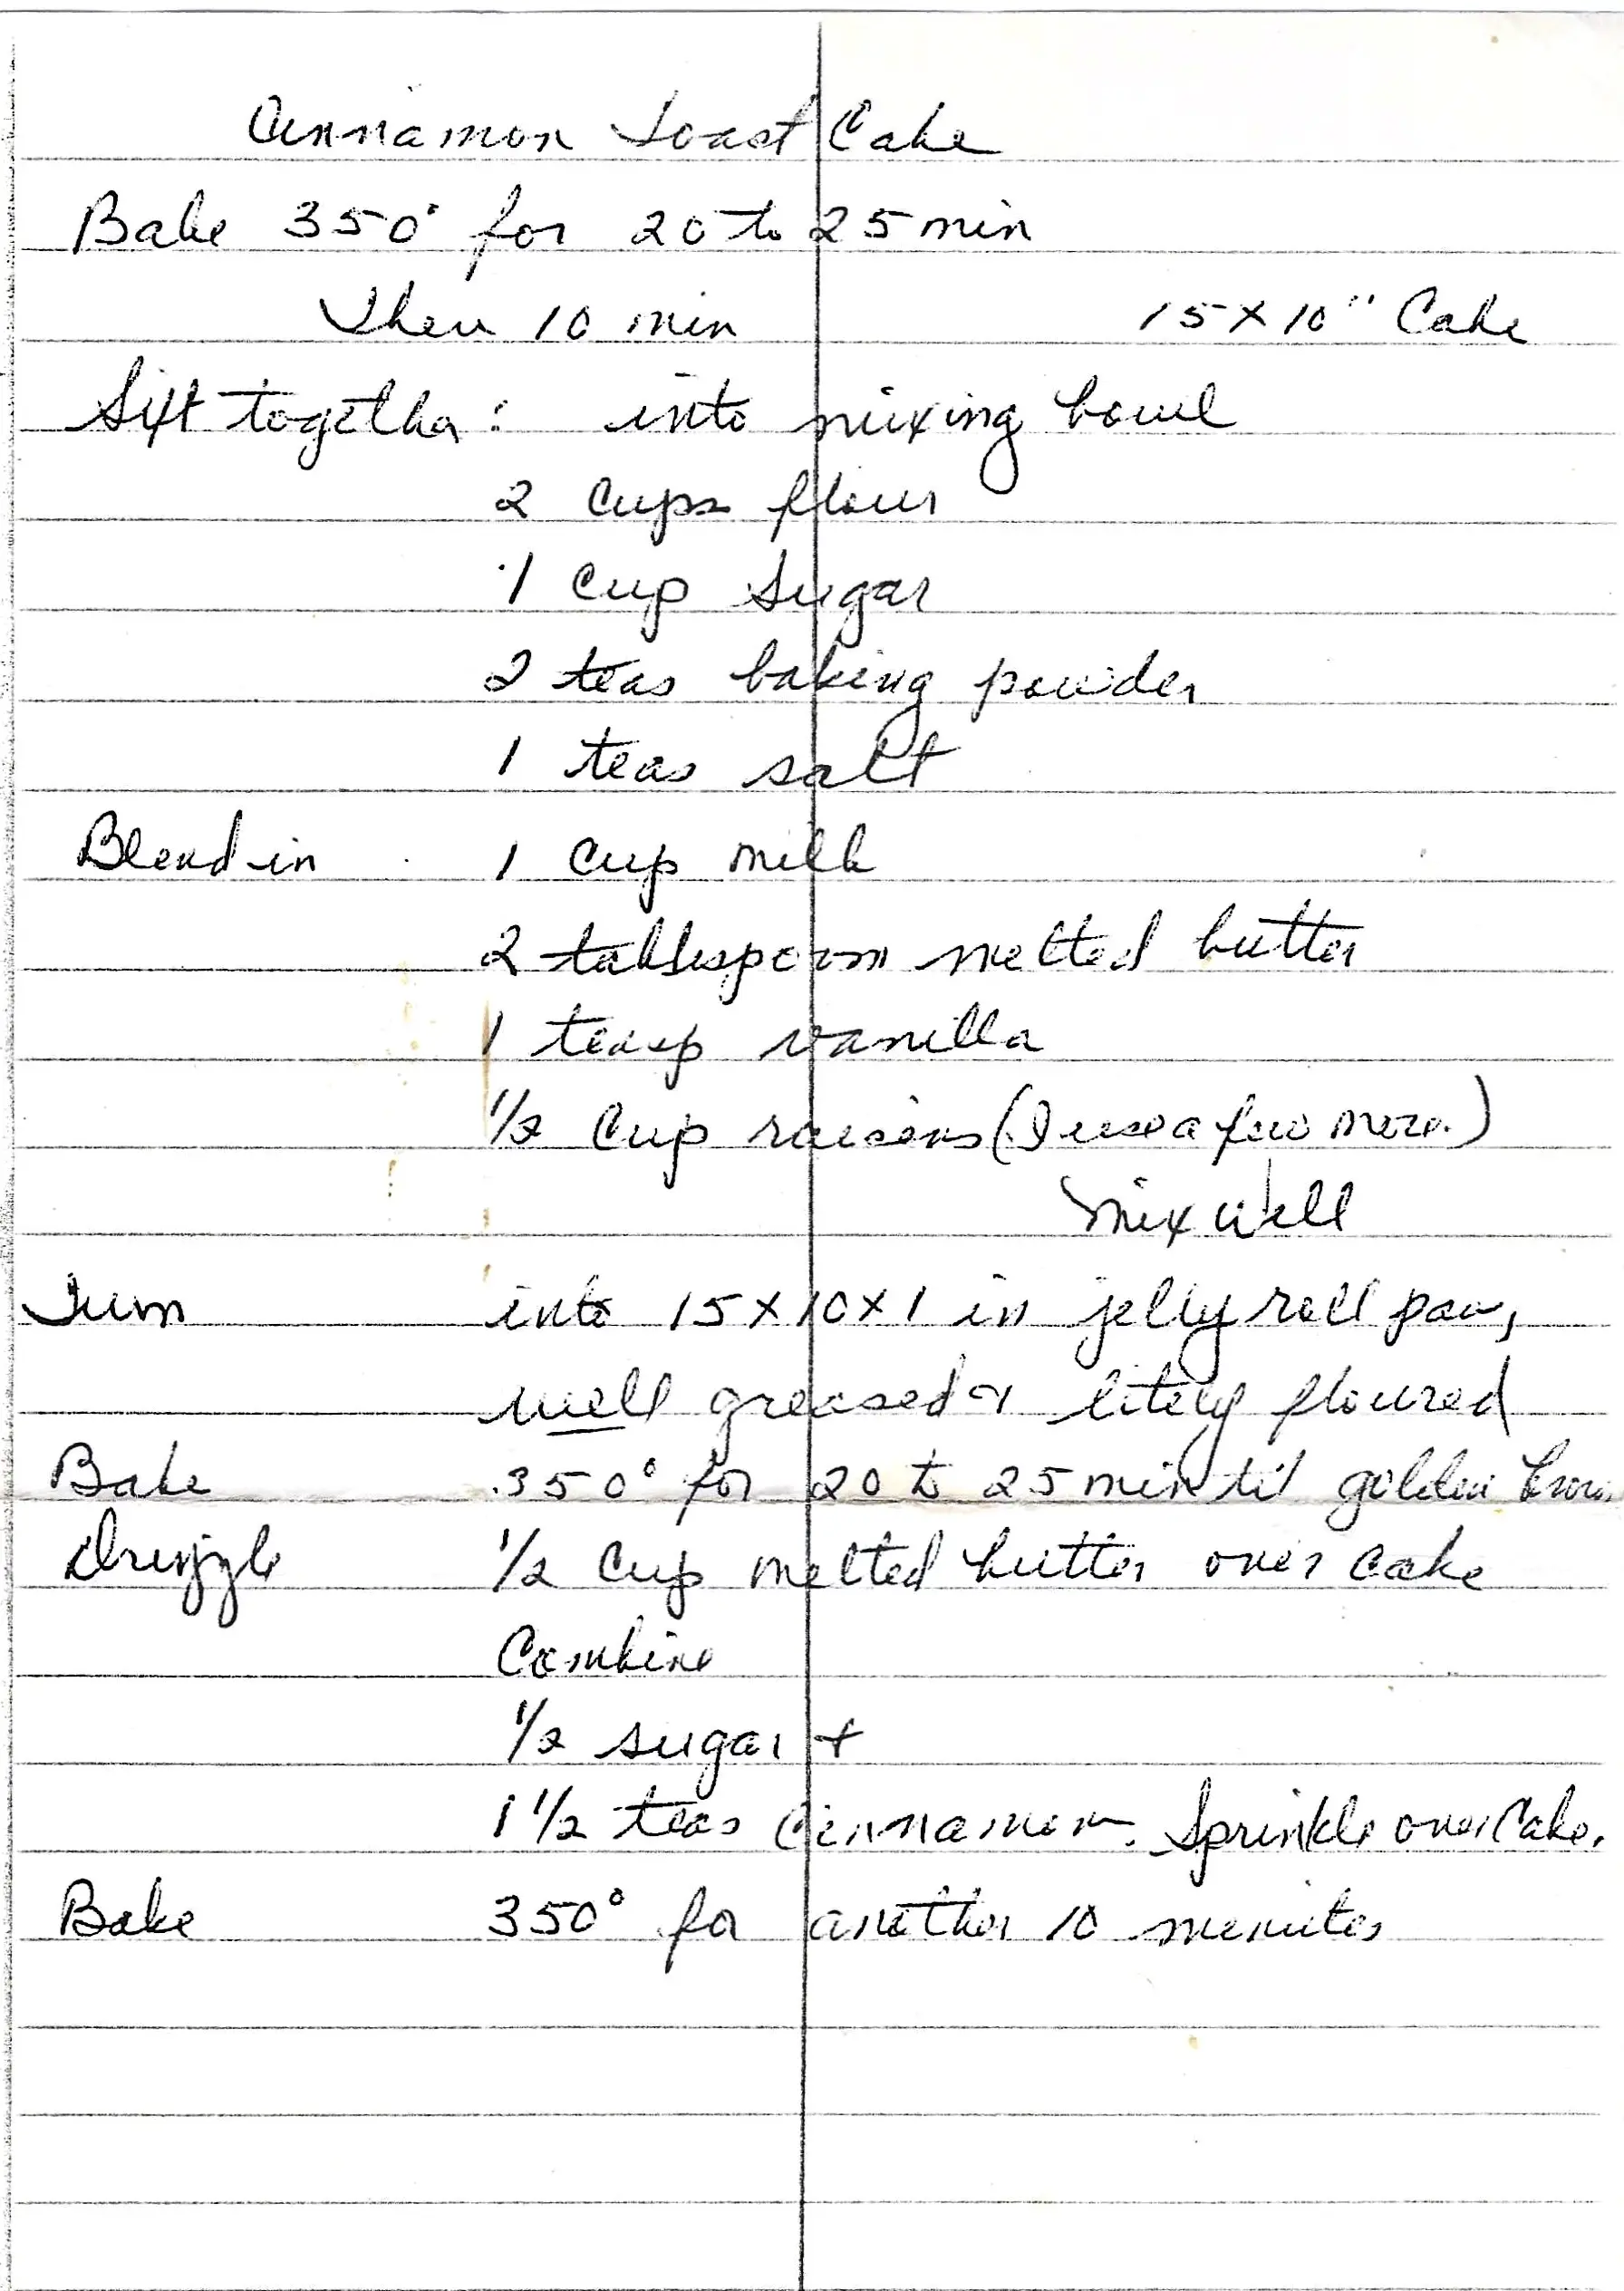 Cinnamon Toast Cake
Bake 350° for 20 to 25 min
Then 10 min 15 x 10" Cake
Sift together: into mixing bowl
2 cups flour
1 cup sugar
2 teas baking powder
1 teas salt
Blend in 1 cup milk
2 tablespoon melted butter
1 teasp vanilla
1/2 cup raisens (I use a few more.)
Mix well
Turn into 15 x 10 x 1 in jelly roll pan,
well greased & litely floured
Bake 350° for 20 to 25 min til golden brown
Drizzle 1/2 cup melted butter over cake
Combine
1/2 sugar +
1 1/2 teas Cinnamon. Sprinkle over Cake.
Bake 350° for another 10 minutes